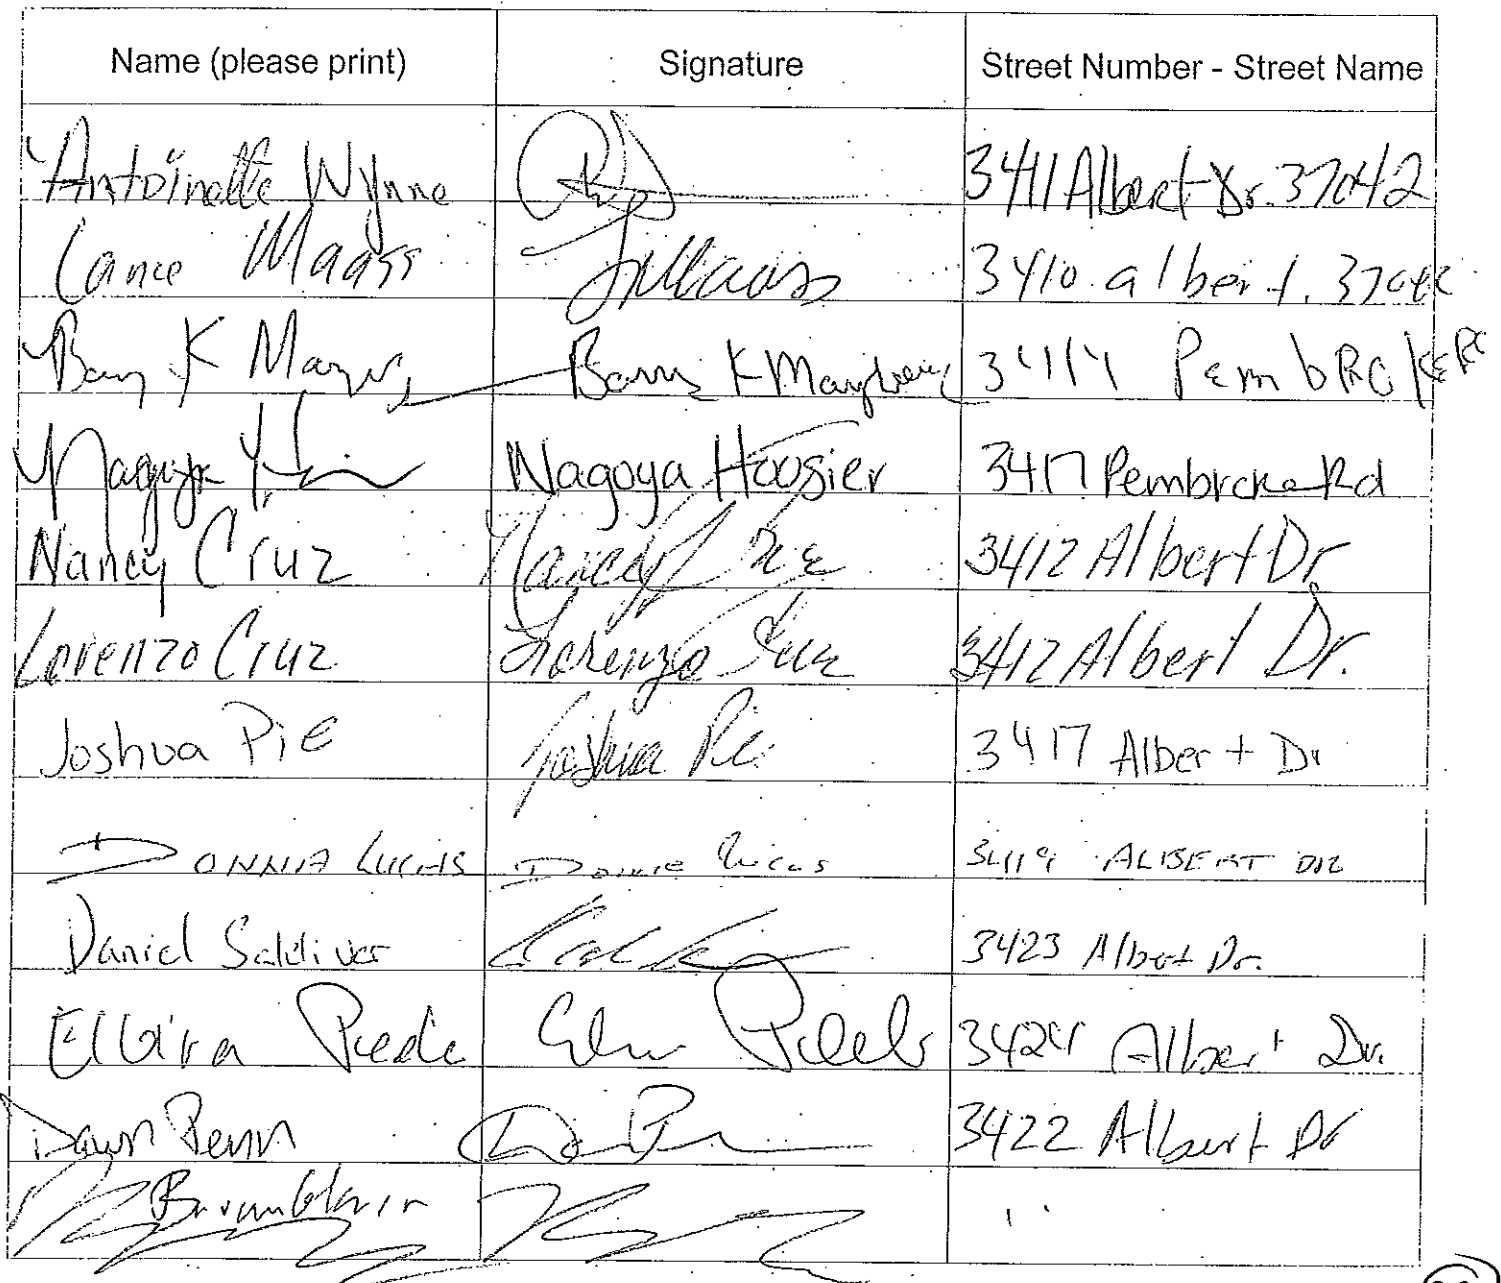 Name (please print) Signature Street Number - Street Name
Antoinette Wynne 3411 Albert Dr. 37042
Lance Maass Maass 3410 albert. 37042
Barry K Barry K 3414 Pembroke Rd
Nagoya Hoosier 3417 Pembroke Rd
Nancy Cruz Nancy Cruz 3412 Albert Dr.
Lorenzo Cruz Lorenzo Cruz 3412 Albert Dr.
Joshua Pie Joshua Pie 3417 Albert Dr
DONNIE LUCAS Donnie Lucas 3419 ALBERT DR
Daniel Saldivar 3423 Albert Dr.
Elvira 3424 Albert Dr.
Dawn Penn 3422 Albert Dr